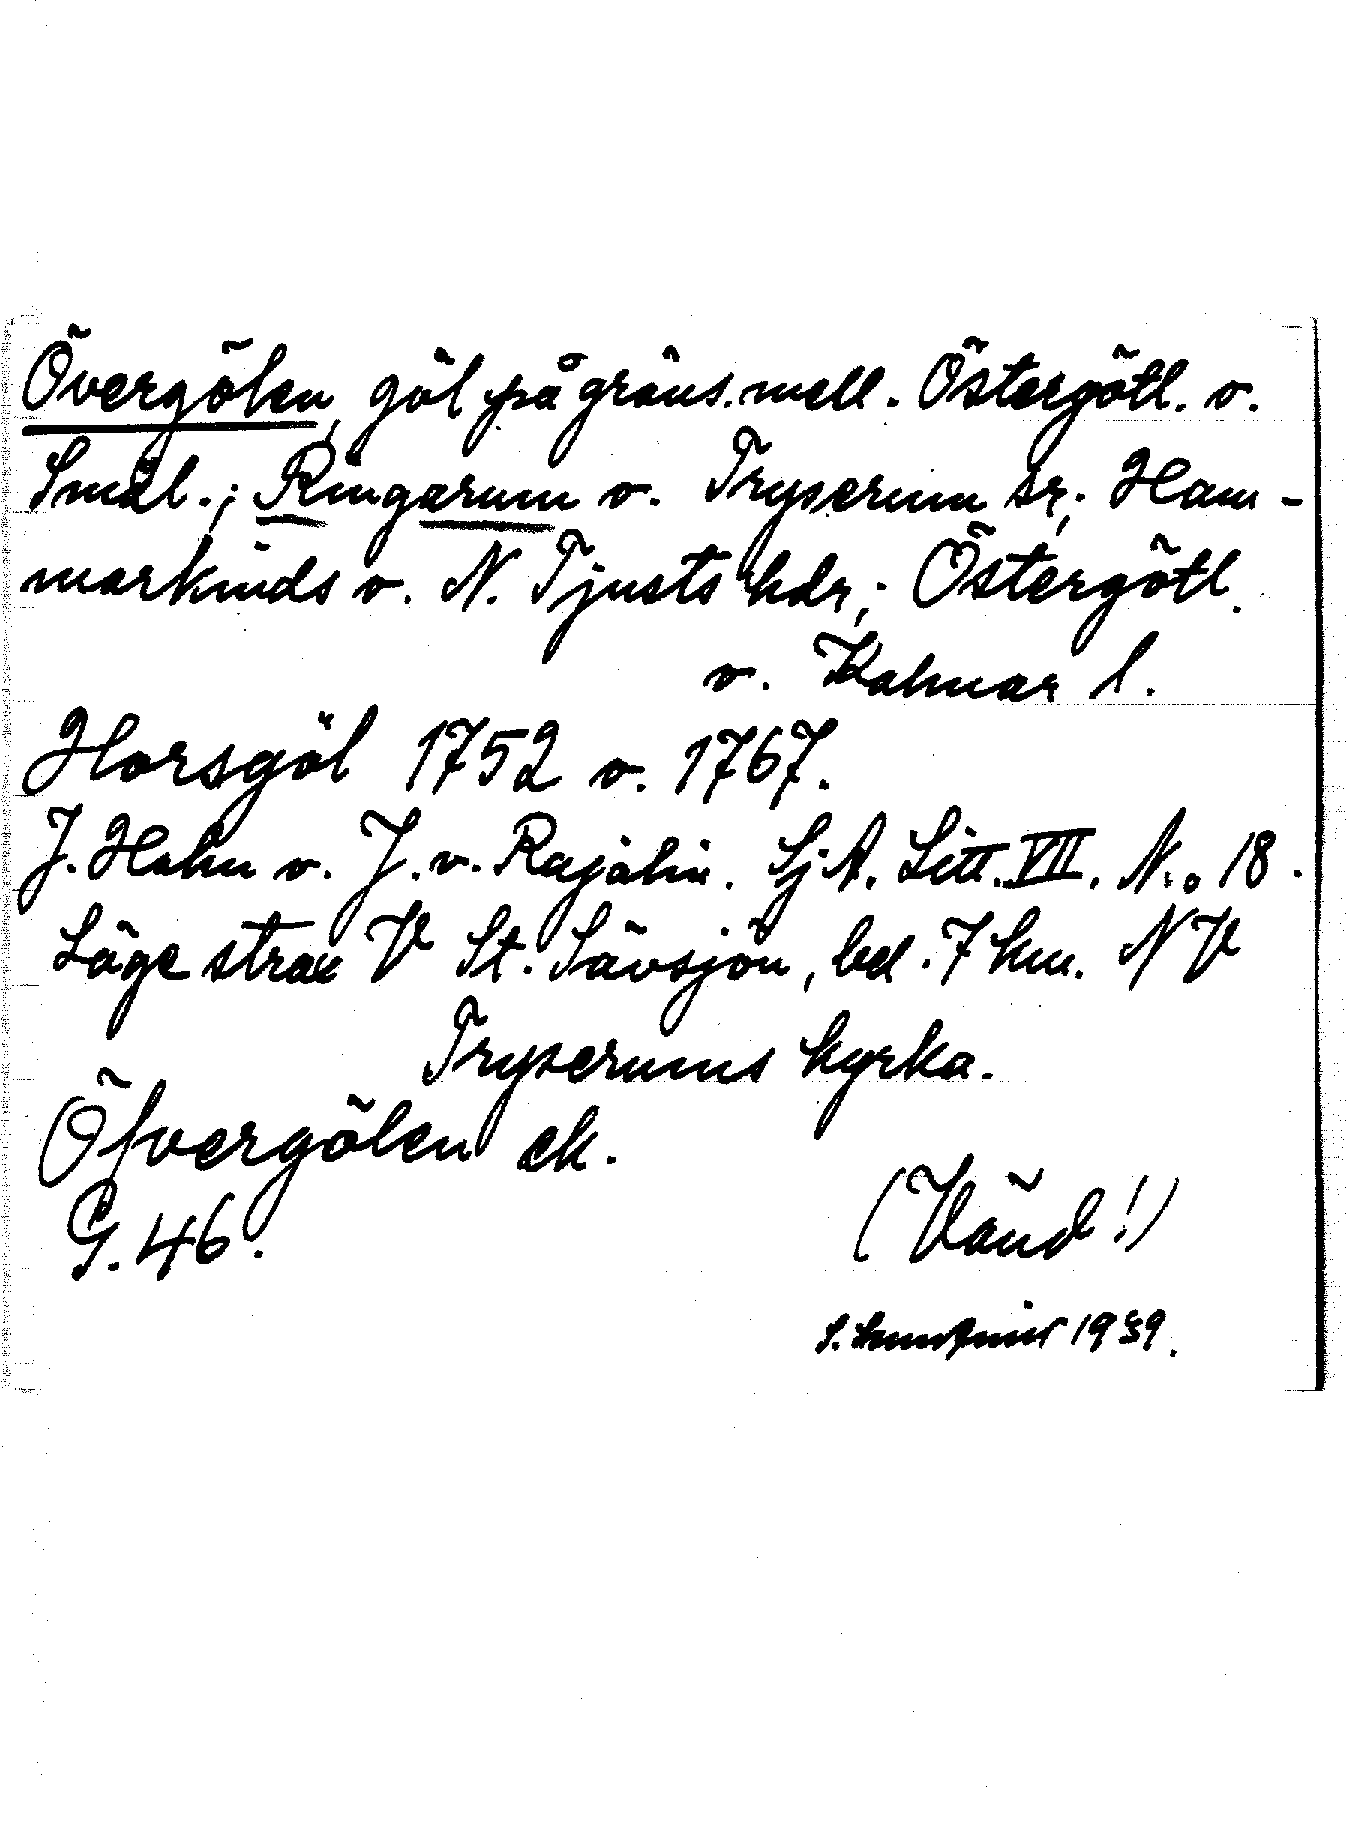 Övergölen, göl på gräns. mell. Östergötl. o.
Smål.; Ringarum o. Tryserum sr; Ham-
markinds o. N. Tjusts hdr; Östergötl.
o. Kalmar l.
Horsgöl 1752 o. 1767.
J. Hahn o. J. v. Rajalin. Sj A. Litt. VII. N:o 18.
Läge strax V St. Sävsjön, bel. 7 km. NV
Tryserums kyrka.
Öfvergölen ek.
G. 46.
(Vänd!)
S. 1939.